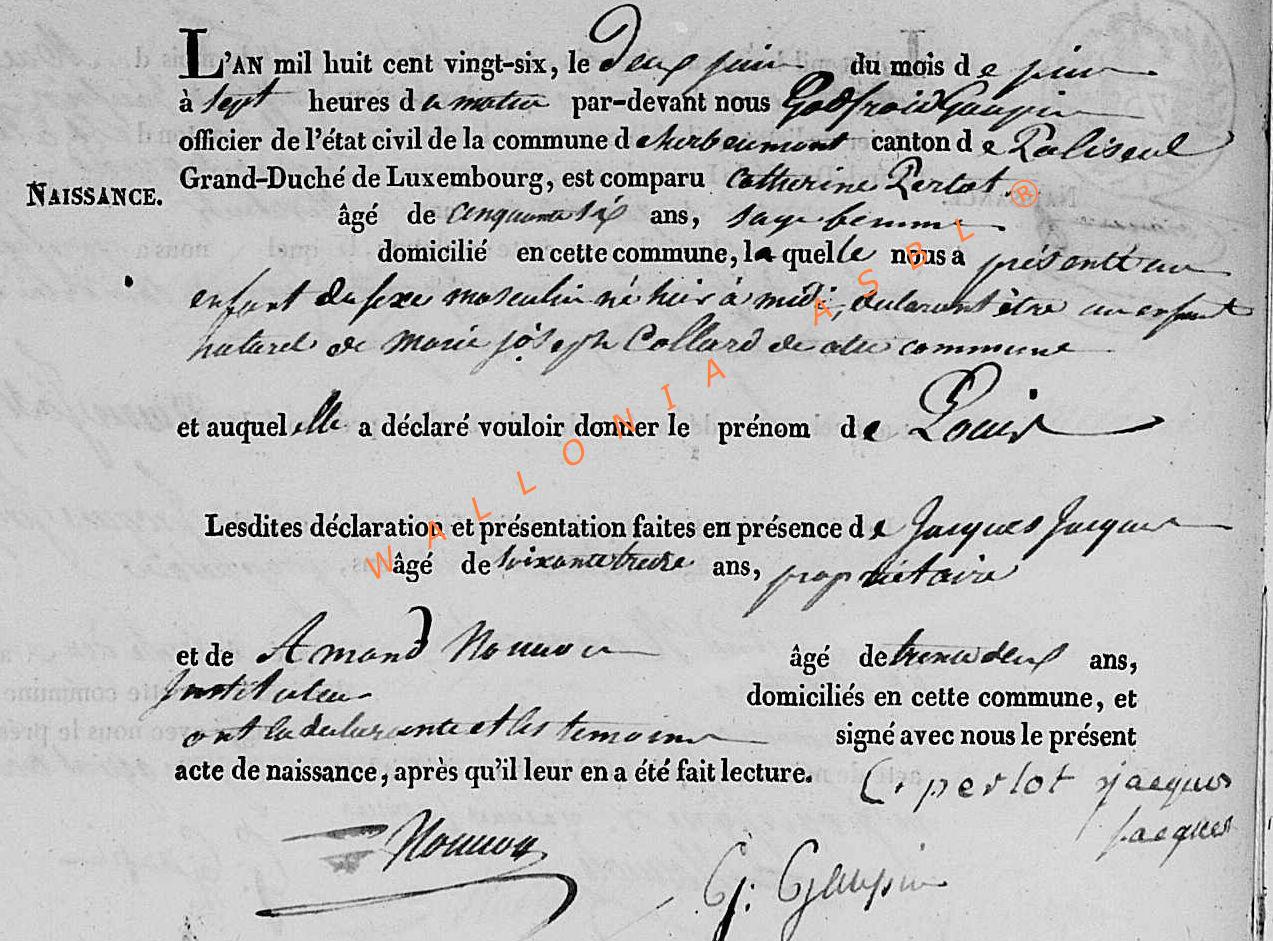 L'AN mil huit cent vingt-six, le deux juin du mois de juin
à sept heures du matin par-devant nous Godfroid Gaupin
officier de l'état civil de la commune d'herbeumont canton de Paliseul
Grand-Duché de Luxembourg, est comparu Catherine Perlot
NAISSANCE.
âgé de cinquante six ans, sage femme
domicilié en cette commune, la quelle nous a présenté un
enfant du sexe masculin né hier à midi, declarant être un enfant
naturel de Marie joseph Collard de cette commune
et auquel elle a déclaré vouloir donner le prénom de Louis
Lesdites déclaration et présentation faites en présence de Jacques Jacques
âgé de soixante treize ans, propriétaire
et de Amand âgé de trente deux ans,
Instituteur
domiciliés en cette commune, et
ont la declarante et les temoins signé avec nous le présent
acte de naissance, après qu'il leur en a été fait lecture.
C. perlot jacques
jacques
G. Gaupin
WALLONIA ASBL ®